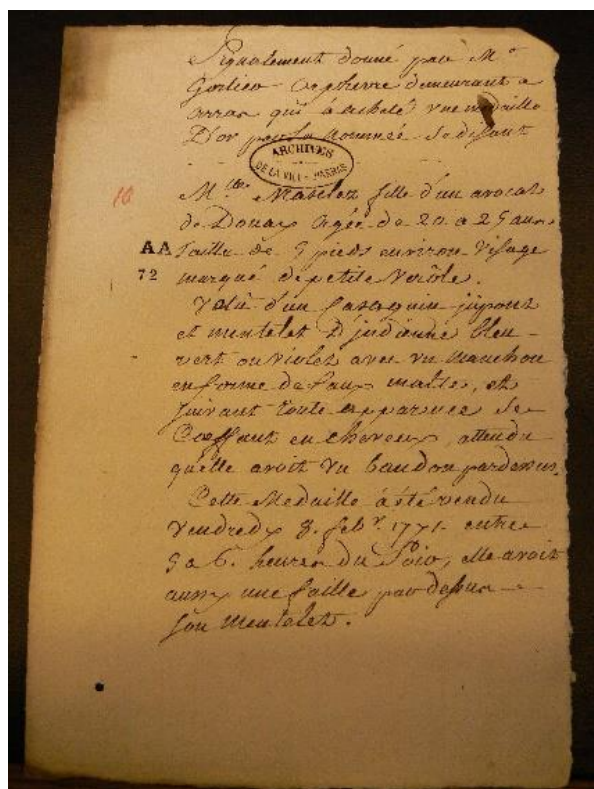 Signalement donné par Mr
Orphevre demeurant a
arras qui à acheté une medaille
D'or par La nommée Se disant
ARCHIVES
DE LA VILLE D'ARRAS
16
Mlle fille d'un avocat
de Douay agée de 20 a 25 ans
AA
72
Taille de 5 pieds environ visage
marqué de petite Verôle.
Vetu d'un Casaquin jupons
et mentelet D'indienne bleu
vert ou violet avec un manchon
en forme de faux martre, et
suivant toute apparence Se
Coeffant en cheveux, attendu
qu'elle avoit un bandon pardessus.
Cette Medaille à été vendu
Vendredy 8. febr. 1771. entre
5 a 6. heures du Soir, elle avoit
aussy une faille par dessus
Son mentelet.